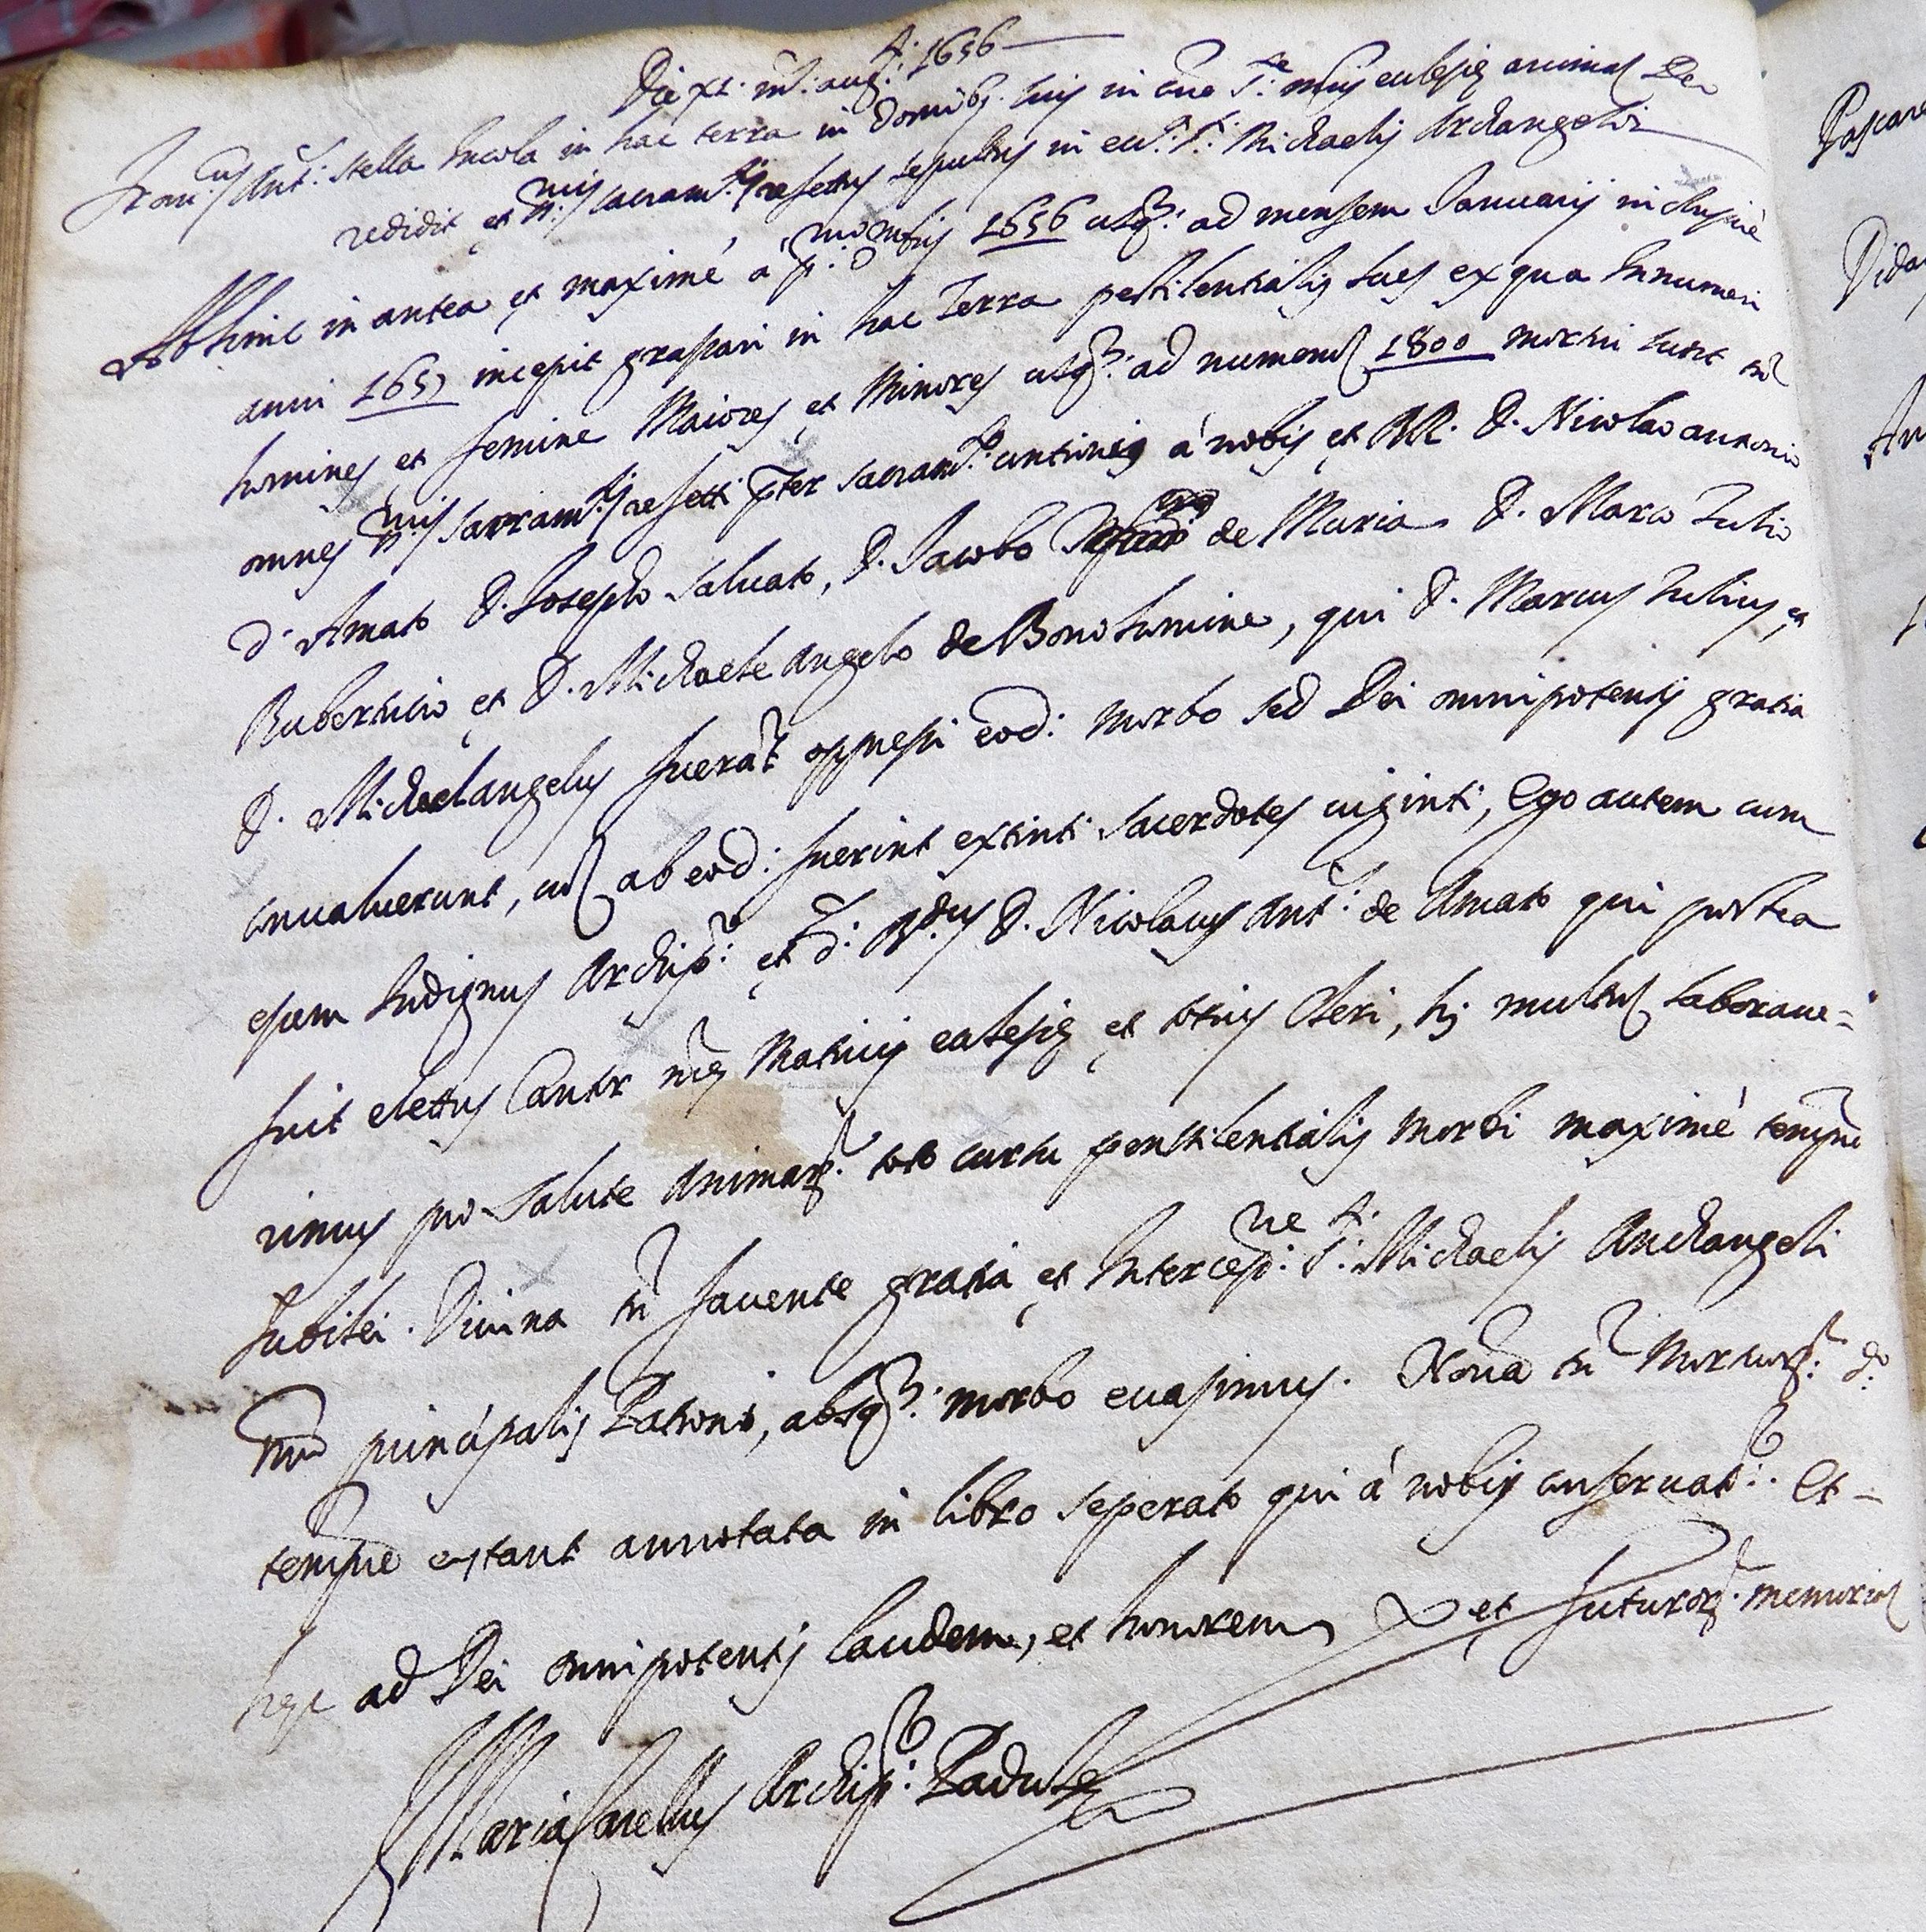 Die xi. m.s aug.ti 1656
Fran.us Ant.s stella Incola in hac terra in domib9 suis in cõe S.te mris eclesie animã Deo
redidit et n.nis sacram.tis refettus sepultus in ecc. S.ti Michaelis Archangeli
Ab hinc in antea et maximè à p.º 9mbris 1656 usq. ad mensem Januarij inclusivè
anni 1657 incepit grassari in hac Terra pestilentialis lues ex qua Innumeri
homines et femine Maiores et Minores usq. ad numerũ 1800 mortui sunt
omnes n.nis sacram.tis refetti p̃ter sacram.to untionis à nobis et RR. D. Nicolao antonio
d'Amato D. Josepho salvato, D. Jacobo de Maria D. Marco Tulio
Rubertucio et D. Michaele Angelo de Bonohomine, qui D. Marcus Tulius, et
D. Michaelangelus fuerãt oppressi eod: morbo sed Dei omnipotentis gratia
convaluerunt, cũ ab eod: fuerint extinti sacerdotes viginti, Ego autem cum
essem Indignus Archip.r et d. R.dus D. Nicolaus Ant.s de Amato qui postea
fuit elettus Cantor nr̃e Matricis eclesie et totius Cleri, hi multũ laborave=
rimus pro salute Animar. toto cursu penstilentialis morbi maximè tempore
Jubilei. Divina tñ favente gratia et Intercess.ne S.ti Michaelis Archangeli
nr̃i principalis Patroni, absq. morbo evasimus. Noĩa tñ Mortuor. d.o
tempore extant annotata in libro seperato qui à nobis conservat.r. Et -
hec ad Dei omnipotentis laudem, et honorem et futuror. memoriã
Maria Archip.r Padulæ
Pascare
Dida
An